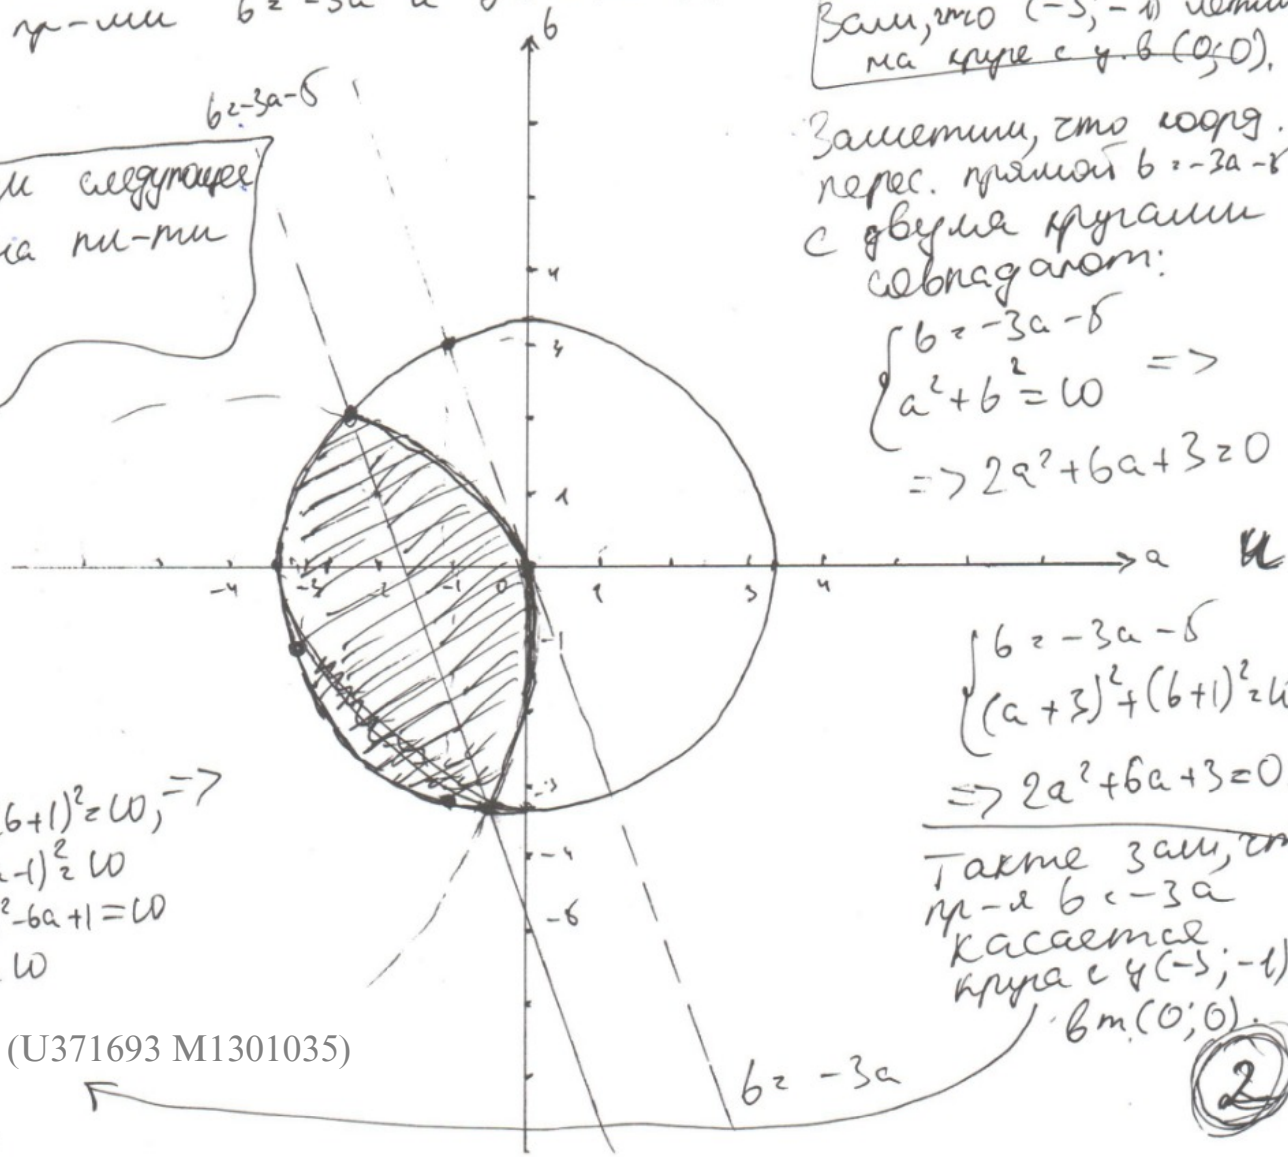 пр-ми b = -3a и
Зам, что (-3; -1) лежит
на круге с ц. в (0;0).
b = -3a-5
м следующее
на пл-ти
Заметим, что коорд.
перес. прямой b = -3a-5
с двумя кругами
совпадают:
b = -3a-5
a²+b²=10 =>
=> 2a²+6a+3=0
и
b = -3a-5
(a+3)²+(b+1)²=10
=> 2a²+6a+3=0
Также зам, чт
пр-я b = -3a
касается
круга с ц (-3; -1)
в т. (0;0).
b
4
3
1
-4 -3 -2 -1 0 1 3 4 a
-1
-3
-4
-5
b+1)²=10, =>
-1)²=10
²-6a+1=10
10
(U371693 M1301035)
b = -3a
2